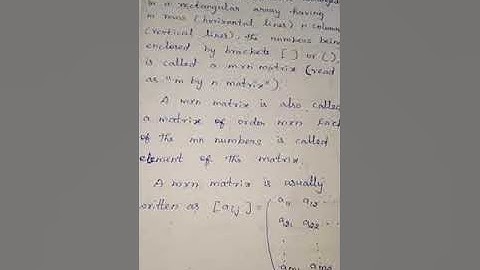 in a rectangular array having
m rows (horizontal lines) n column
(vertical lines), the numbers being
enclosed by brackets [ ] or ( ),
is called a mxn matrix (read
as "m by n matrix").
A mxn matrix is also called
a matrix of order mxn Each
of the mn numbers is called
element of the matrix.
A mxn matrix is usually
written as [aij] = ( a11 a12 ...
a21 a22 ...
⋮ ⋮
am1 am2